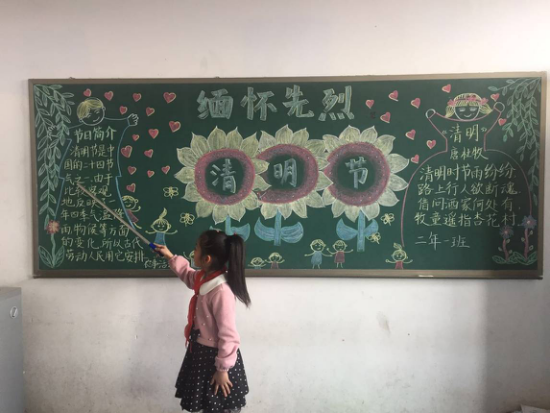 缅怀先烈
清明节
节日简介
清明节是中
国的二十四节
之一.由于
地反映
年四季气温
雨物候等方面
的变化,所以古代
劳动人民用它安排
农事活
“清明”
唐·杜牧
清明时节雨纷纷
路上行人欲断魂.
借问酒家何处有,
牧童遥指杏花村
二年一班